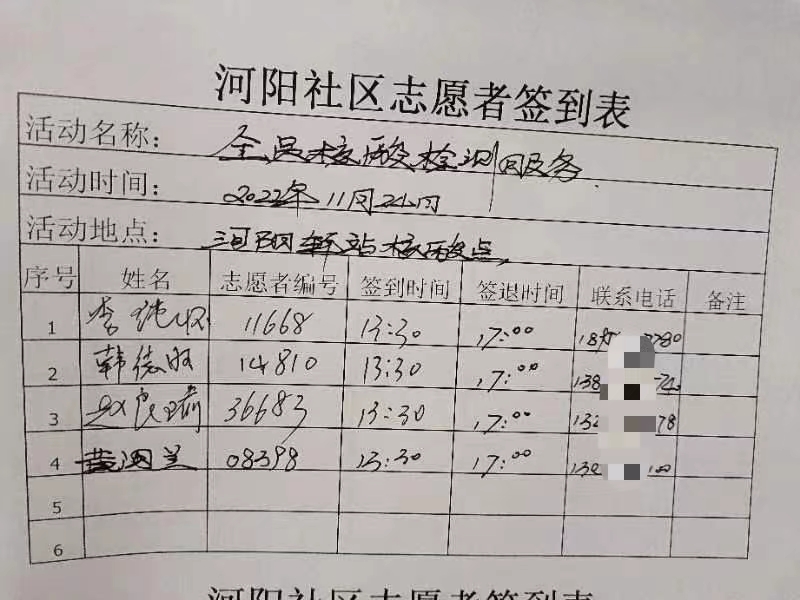 河阳社区志愿者签到表
活动名称： 全员核酸检测服务
活动时间： 2022年11月24日
活动地点： 河阳轩站核酸点
序号 姓名 志愿者编号 签到时间 签退时间 联系电话 备注
1 李 11668 13:30 17:00
2 韩德 14810 13:30 17:00 138
3 赵良 36683 13:30 17:00 78
4 黄 兰 08398 13:30 17:00
5
6
河阳社区志愿者签到表